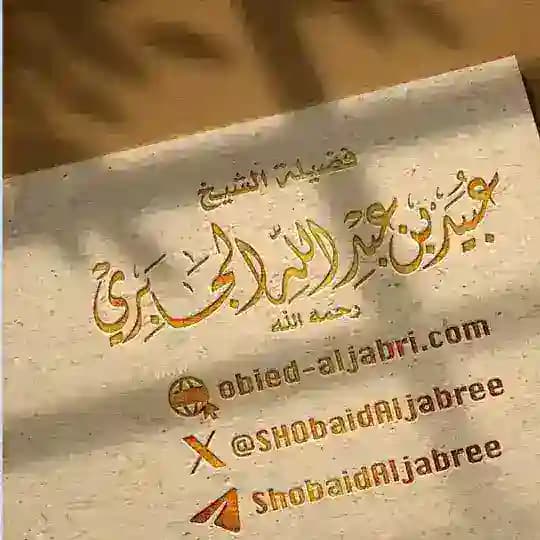 فضيلة الشيخ
عبيد بن عبد الله الجابري
رحمه الله
obied-aljabri.com
@SHObaidAljabree
ShobaidAljabree